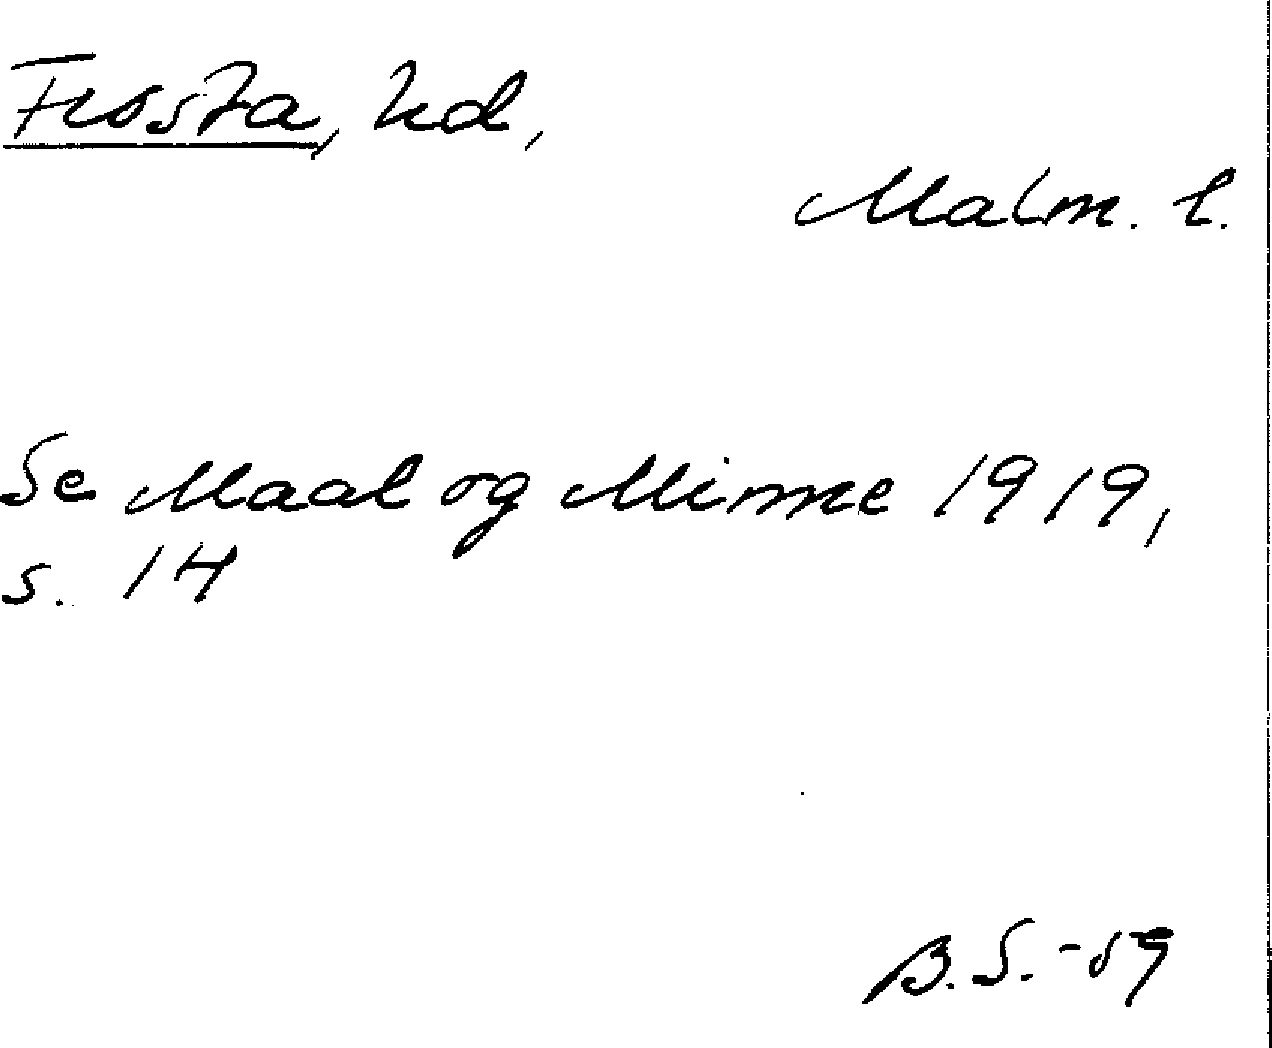 Frosta, hd,
Malm. l.
Se Maal og Minne 1919,
s. 14
B.S. -59